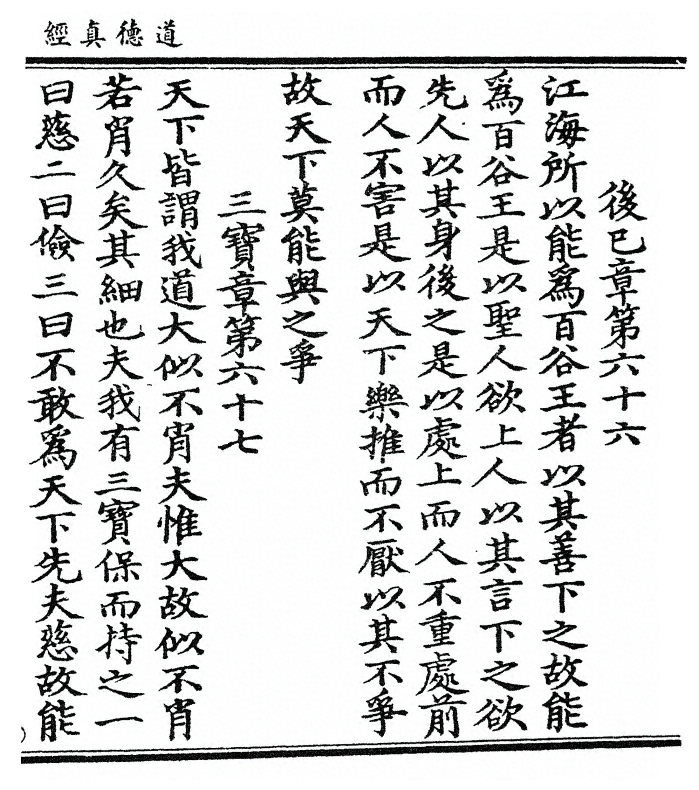 道德真經
後已章第六十六
江海所以能爲百谷王者以其善下之故能
爲百谷王是以聖人欲上人以其言下之欲
先人以其身後之是以處上而人不重處前
而人不害是以天下樂推而不厭以其不爭
故天下莫能與之爭
三寶章第六十七
天下皆謂我道大似不肖夫惟大故似不肖
若肖久矣其細也夫我有三寶保而持之一
曰慈二曰儉三曰不敢爲天下先夫慈故能